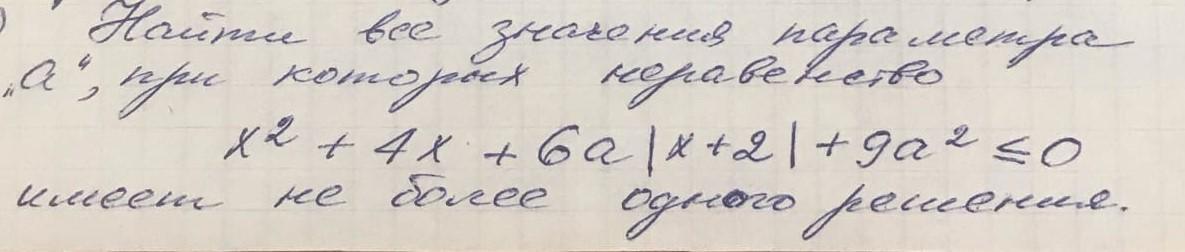 ) Найти все значения параметра
„а“, при которых неравенство
x² + 4x + 6a|x+2| + 9a² ≤ 0
имеет не более одного решения.